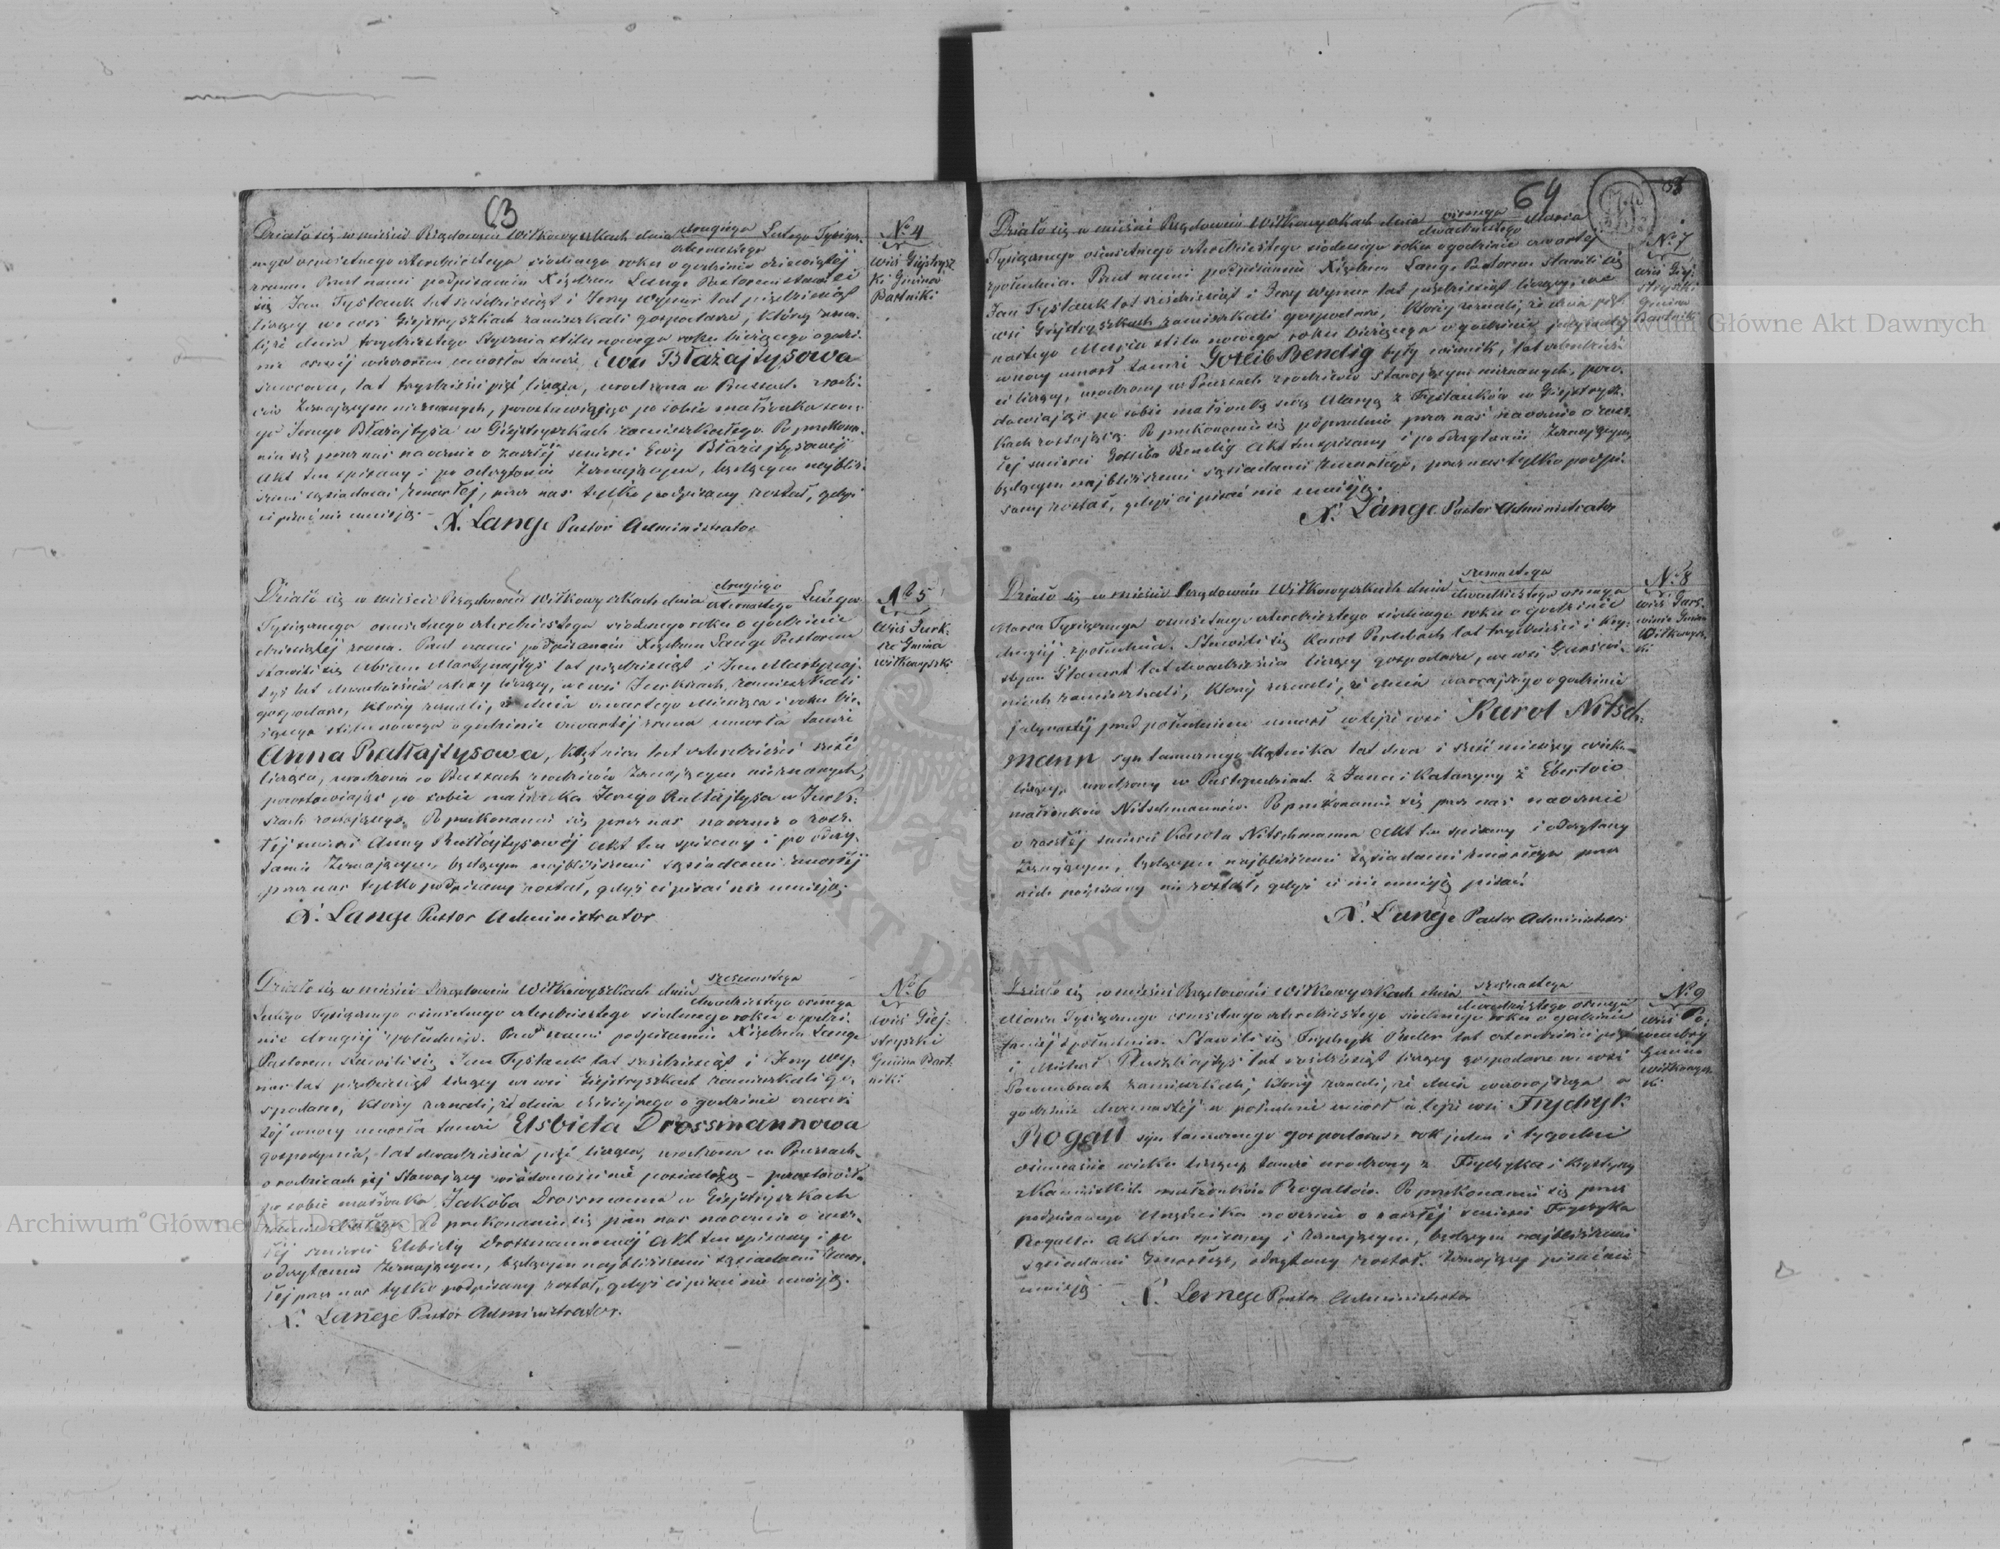 63
Działo się w mieście Rządowem Wiłkowyszkach dnia drugiego/czternastego Lutego Tysiącz-
nego ośmsetnego czterdziestego siódmego roku o godzinie dziewiątej
zrana. Przed nami podpisanym Xiędzem Lange Pastorem stawili
się Jan Tystauk lat sześdziesiąt i Jerzy Wyner lat pięździesiąt
liczący we wsi Giejstryszkach zamieszkali gospodarze, którzy zezna-
li, że dnia trzydziestego Stycznia stilu nowego roku bieżącego o godzi-
nie ósmej wieczorem umarła tamże Ewa Błażajtysowa
szewcowa, lat trzydzieści pięć licząca, urodzona w Prussach z rodzi-
ców Zeznającym nieznanych, pozostawiając po sobie małżonka swe-
go Jerzego Błażajtysa w Giejstryszkach zamieszkałego. Po przekona-
niu się przez nas naocznie o zaszłej śmierci Ewy Błażajtysowej
Akt ten spisany i po odczytaniu Zeznającym, będącym najbliż-
szemi sąsiadami Zmarłej, przez nas tylko podpisany został, gdyż
ci pisać nie umieją.
X. Lange Pastor Administrator
No 4
Wieś Giejstrysz
ki Gmina
Bartniki
Działo się w mieście Rządowem Wiłkowyszkach dnia drugiego/czternastego Lutego
Tysiącznego ośmsetnego czterdziestego siódmego roku o godzinie
dziesiątej zrana. Przed nami podpisanym Xiędzem Lange Pastorem
stawili się Abram Martynajtys lat pięździesiąt i Jan Martynaj-
tys lat dwadzieścia cztery liczący, we wsi Jurkszach zamieszkali
gospodarze, którzy zeznali, że dnia czwartego Miesiąca i roku bie-
żącego stilu nowego o godzinie czwartej zrana umarła tamże
Anna Ratłajtysowa, kątnica lat czterdzieści sześć
licząca, urodzona w Prussach z rodziców Zeznającym nieznanych,
pozostawiając po sobie małżonka Jerzego Ratłajtysa w Jurk-
szach zostającego. Po przekonaniu się przez nas naocznie o zasz-
łej śmierci Anny Ratłajtysowej Akt ten spisany i po odczy-
taniu Zeznającym, będącym najbliższemi sąsiadami zmarłej
przez nas tylko podpisany został, gdyż ci pisać nie umieją.
X. Lange Pastor Administrator
No 5
Wieś Jurk-
sze Gmina
Wiłkowyszki
Działo się w mieście Rządowem Wiłkowyszkach dnia szesnastego/dwudziestego ósmego
Lutego Tysiącznego ośmsetnego czterdziestego siódmego roku o godzi-
nie drugiej z południa. Przed nami podpisanym Xiędzem Lange
Pastorem stawili się Jan Tystauk lat sześdziesiąt i Jerzy Wy-
ner lat pięździesiąt liczący we wsi Giejstryszkach zamieszkali go-
spodarze, którzy zeznali, że dnia dzisiejszego o godzinie czwar-
tej w nocy umarła tamże Elsbieta Drossmannowa
gospodyni, lat dwadzieścia pięć licząca, urodzona w Prussach
o rodzicach jej Stawający wiadomości nie posiadają – pozostawiła
po sobie małżonka Jakóba Drossmanna w Giejstryszkach
zamieszkałego. Po przekonaniu się przez nas naocznie o zasz-
łej śmierci Elsbiety Drossmannowej Akt ten spisany i po
odczytaniu Zeznającym, będącym najbliższemi sąsiadami Zmar-
łej przez nas tylko podpisany został, gdyż ci pisać nie umieją.
X. Lange Pastor Administrator.
No 6
Wieś Giej-
stryszki
Gmina Bart
niki
64
Działo się w mieście Rządowem Wiłkowyszkach dnia ósmego/dwudziestego Marca
Tysiącznego ośmsetnego czterdziestego siódmego roku o godzinie czwartej
z południa. Przed nami podpisanym Xiędzem Lange Pastorem stawili się
Jan Tystauk lat sześdziesiąt i Jerzy Wyner lat pięździesiąt liczący, we
wsi Giejstryszkach zamieszkali gospodarze, którzy zeznali, że dnia pięt-
nastego Marca stilu nowego roku bieżącego o godzinie
w nocy umarł tamże Gotlib Bendig były lat
liczący, urodzony w Prussach z rodziców Stawającym nieznanych, pozo-
stawiając po sobie małżonkę swą Maryą z Tystauków w Giejstrysz-
kach zostającą. Po przekonaniu się poprzednio przez nas naocznie o zasz-
łej śmierci Gotliba Bendig Akt ten spisany i po odczytaniu Zeznającym,
będącym najbliższemi sąsiadami Zmarłego, przez nas tylko podpi-
sany został, gdyż ci pisać nie umieją.
X. Lange Pastor Administrator
No 7
Wieś Giej-
stryszki
Gmina
Bartniki
Działo się w mieście Rządowem Wiłkowyszkach dnia szesnastego/dwudziestego ósmego
Marca Tysiącznego ośmsetnego czterdziestego siódmego roku o godzinie
drugiej z południa. Stawili się Karol Perlbach lat trzydzieści i Kry-
styan lat dwadzieścia liczący gospodarze, we wsi
zamieszkali, którzy zeznali, że dnia wczorajszego o godzinie
jedynastej przed południem umarł w tejże wsi Karol Nitsch-
mann syn tamecznego kątnika lat dwa i sześć miesięcy wieku
liczący, urodzony w z Jana i Katarzyny z Ebertów
małżonków Nitschmannów. Po przekonaniu się przez nas naocznie
o zaszłej śmierci Karola Nitschmanna Akt ten spisany i odczytany
Zeznającym, będącym najbliższemi sąsiadami Zmarłego przez
nich podpisany nie został, gdyż ci nie umieją pisać.
X. Lange Pastor Administrator
No 8
Wieś
Gmina
Wiłkowysz-
ki
Działo się w mieście Rządowem Wiłkowyszkach dnia szesnastego/dwudziestego ósmego
Marca Tysiącznego ośmsetnego czterdziestego siódmego roku o godzinie
z południa. Stawili się Frydryk lat czterdzieści pięć
i lat sześdziesiąt liczący gospodarze we wsi
zamieszkali, którzy zeznali, że dnia wczorajszego o
godzinie dwunastej w południe umarł w tejże wsi Frydryk
Rogall syn tamecznego gospodarza, rok jeden i tygodni
wieku liczący tamże urodzony z Frydryka i Krystyny
z małżonków Rogallów. Po przekonaniu się przez
podpisanego Urzędnika naocznie o zaszłej śmierci Frydryka
Rogalla Akt ten spisany i Zeznającym, będącym najbliższemi
sąsiadami Zmarłego, odczytany został. Zeznający pisać nie
umieją
X. Lange Pastor Administrator
No 9
Wieś
Gmina
Wiłkowysz-
ki
Archiwum Główne Akt Dawnych
Archiwum Główne Akt Dawnych